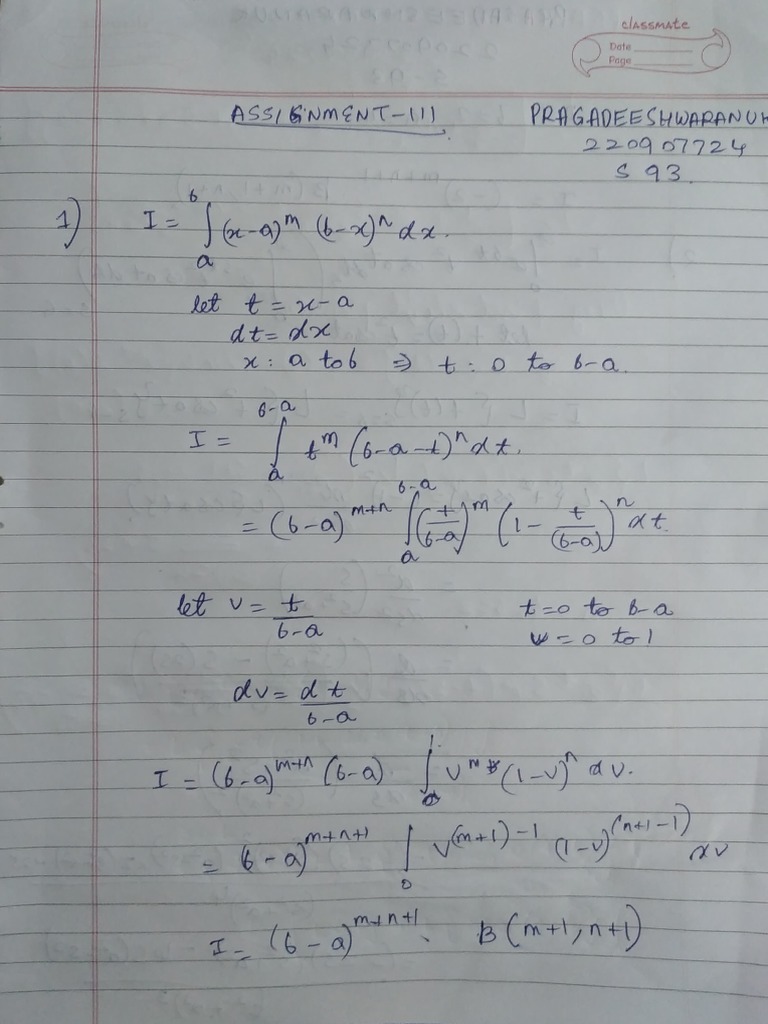 classmate
Date
Page
ASSIGNMENT-III
PRAGADEESHWARAN
220907724
S 93.
1) I = ∫_a^b (x-a)^m (b-x)^n dx.
let t = x-a
dt = dx
x : a to b ⇒ t : 0 to b-a.
I = ∫_a^{b-a} t^m (b-a-t)^n dt.
= (b-a)^{m+n} ∫_a^{b-a} (t/(b-a))^m (1 - t/(b-a))^n dt.
let v = t/(b-a) t=0 to b-a
v = 0 to 1
dv = dt/(b-a)
I = (b-a)^{m+n} (b-a) ∫_0^1 v^m (1-v)^n dv.
= (b-a)^{m+n+1} ∫_0 v^{(m+1)-1} (1-v)^{(n+1-1)} dv
I = (b-a)^{m+n+1} . B(m+1, n+1)